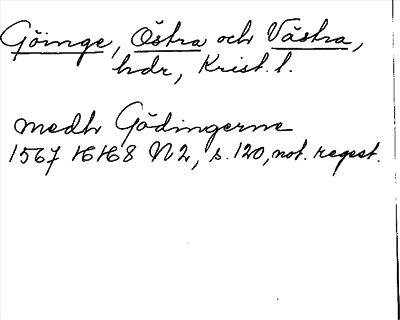 Göinge, Östra och Västra,
hdr, Krist. l.
medh Gödingerne
1567 HH8 N2, s. 120, not. regest.